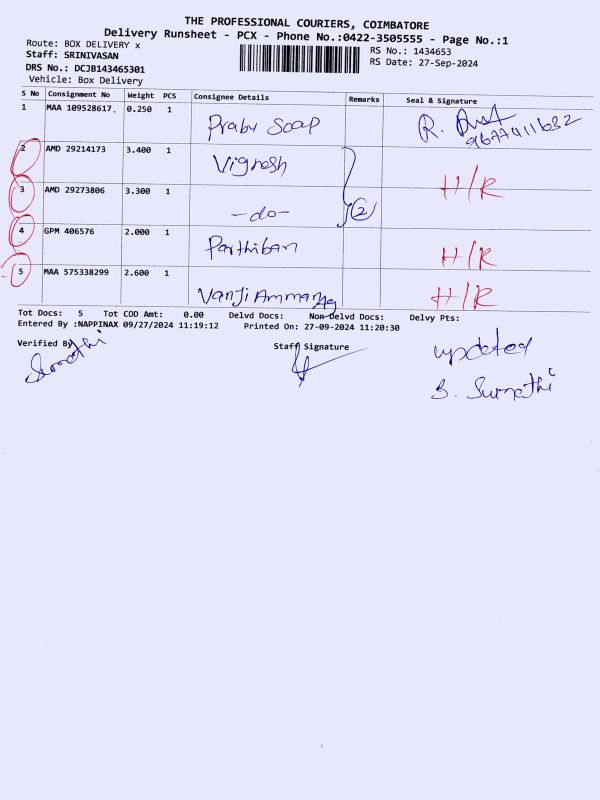 THE PROFESSIONAL COURIERS, COIMBATORE
Delivery Runsheet - PCX - Phone No.:0422-3505555 - Page No.:1
Route: BOX DELIVERY x
Staff: SRINIVASAN
DRS No.: DCJB143465301
Vehicle: Box Delivery
RS No.: 1434653
RS Date: 27-Sep-2024
S No Consignment No Weight PCS Consignee Details Remarks Seal & Signature
1 MAA 109528617. 0.250 1 Prabu Soap R. 9677411632
2 AMD 29214173 3.400 1 Vignesh H/R
3 AMD 29273806 3.300 1 -do- 2
4 GPM 406576 2.000 1 Parthiban H/R
5 MAA 575338299 2.600 1 Vanji Amman H/R
Tot Docs: 5 Tot COD Amt: 0.00 Delvd Docs: Non-Delvd Docs: Delvy Pts:
Entered By :NAPPINAX 09/27/2024 11:19:12 Printed On: 27-09-2024 11:20:30
Verified By Staff Signature updated
S. Sumathi